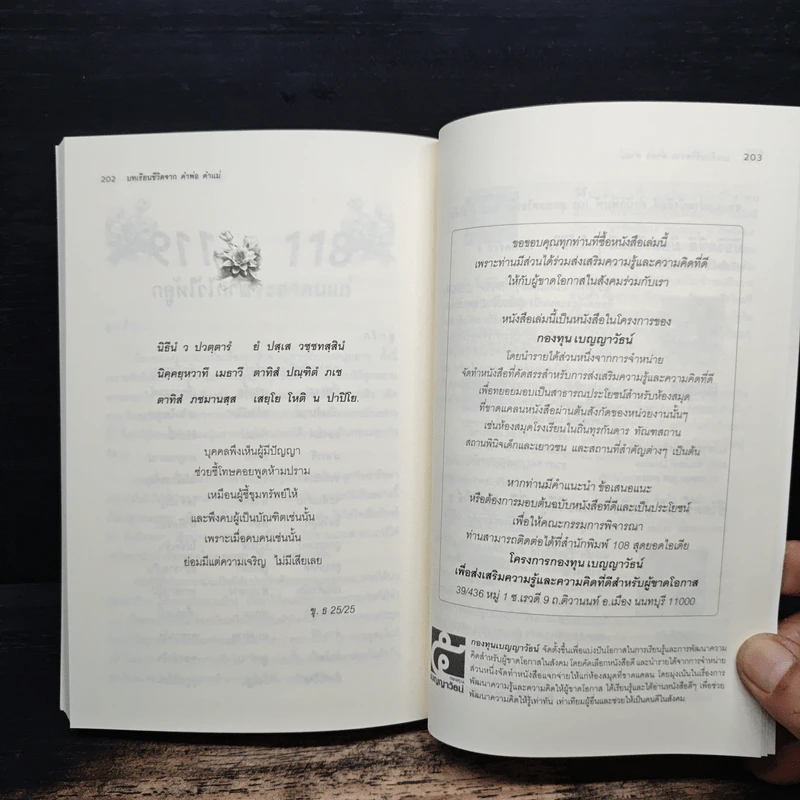 202 บทเรียนชีวิตจาก คำพ่อ คำแม่
นิธีนํ ว ปวตฺตารํ ยํ ปสฺเส วชฺชทสฺสินํ
นิคฺคยฺหวาทึ เมธาวึ ตาทิสํ ปณฺฑิตํ ภเช
ตาทิสํ ภชมานสฺส เสยฺโย โหติ น ปาปิโย.
บุคคลพึงเห็นผู้มีปัญญา
ช่วยชี้โทษคอยพูดห้ามปราม
เหมือนผู้ชี้ขุมทรัพย์ให้
และพึงคบผู้เป็นบัณฑิตเช่นนั้น
เพราะเมื่อคบคนเช่นนั้น
ย่อมมีแต่ความเจริญ ไม่มีเสียเลย
ขุ. ธ 25/25
203
ขอขอบคุณทุกท่านที่ซื้อหนังสือเล่มนี้
เพราะท่านมีส่วนได้ร่วมส่งเสริมความรู้และความคิดที่ดี
ให้กับผู้ขาดโอกาสในสังคมร่วมกับเรา
หนังสือเล่มนี้เป็นหนังสือในโครงการของ
กองทุน เบญญาวัธน์
โดยนำรายได้ส่วนหนึ่งจากการจำหน่าย
จัดทำหนังสือที่คัดสรรสำหรับการส่งเสริมความรู้และความคิดที่ดี
เพื่อทยอยมอบเป็นสาธารณประโยชน์สำหรับห้องสมุด
ที่ขาดแคลนหนังสือผ่านต้นสังกัดของหน่วยงานนั้นๆ
เช่นห้องสมุดโรงเรียนในถิ่นทุรกันดาร ทัณฑสถาน
สถานพินิจเด็กและเยาวชน และสถานที่สำคัญต่างๆ เป็นต้น
หากท่านมีคำแนะนำ ข้อเสนอแนะ
หรือต้องการมอบต้นฉบับหนังสือที่ดีและเป็นประโยชน์
เพื่อให้คณะกรรมการพิจารณา
ท่านสามารถติดต่อได้ที่สำนักพิมพ์ 108 สุดยอดไอเดีย
โครงการกองทุน เบญญาวัธน์
เพื่อส่งเสริมความรู้และความคิดที่ดีสำหรับผู้ขาดโอกาส
39/436 หมู่ 1 ซ.เรวดี 9 ถ.ติวานนท์ อ.เมือง นนทบุรี 11000
กองทุนเบญญาวัธน์ จัดตั้งขึ้นเพื่อแบ่งปันโอกาสในการเรียนรู้และการพัฒนาความ
คิดสำหรับผู้ขาดโอกาสในสังคม โดยคัดเลือกหนังสือดี และนำรายได้จากการจำหน่าย
ส่วนหนึ่งจัดทำหนังสือแจกจ่ายให้แก่ห้องสมุดที่ขาดแคลน โดยมุ่งเน้นในเรื่องการ
พัฒนาความรู้และความคิดให้ผู้ขาดโอกาส ได้เรียนรู้และได้อ่านหนังสือดีๆ เพื่อช่วย
พัฒนาความคิดให้รู้เท่าทัน เท่าเทียมผู้อื่นและช่วยให้เป็นคนดีในสังคม.